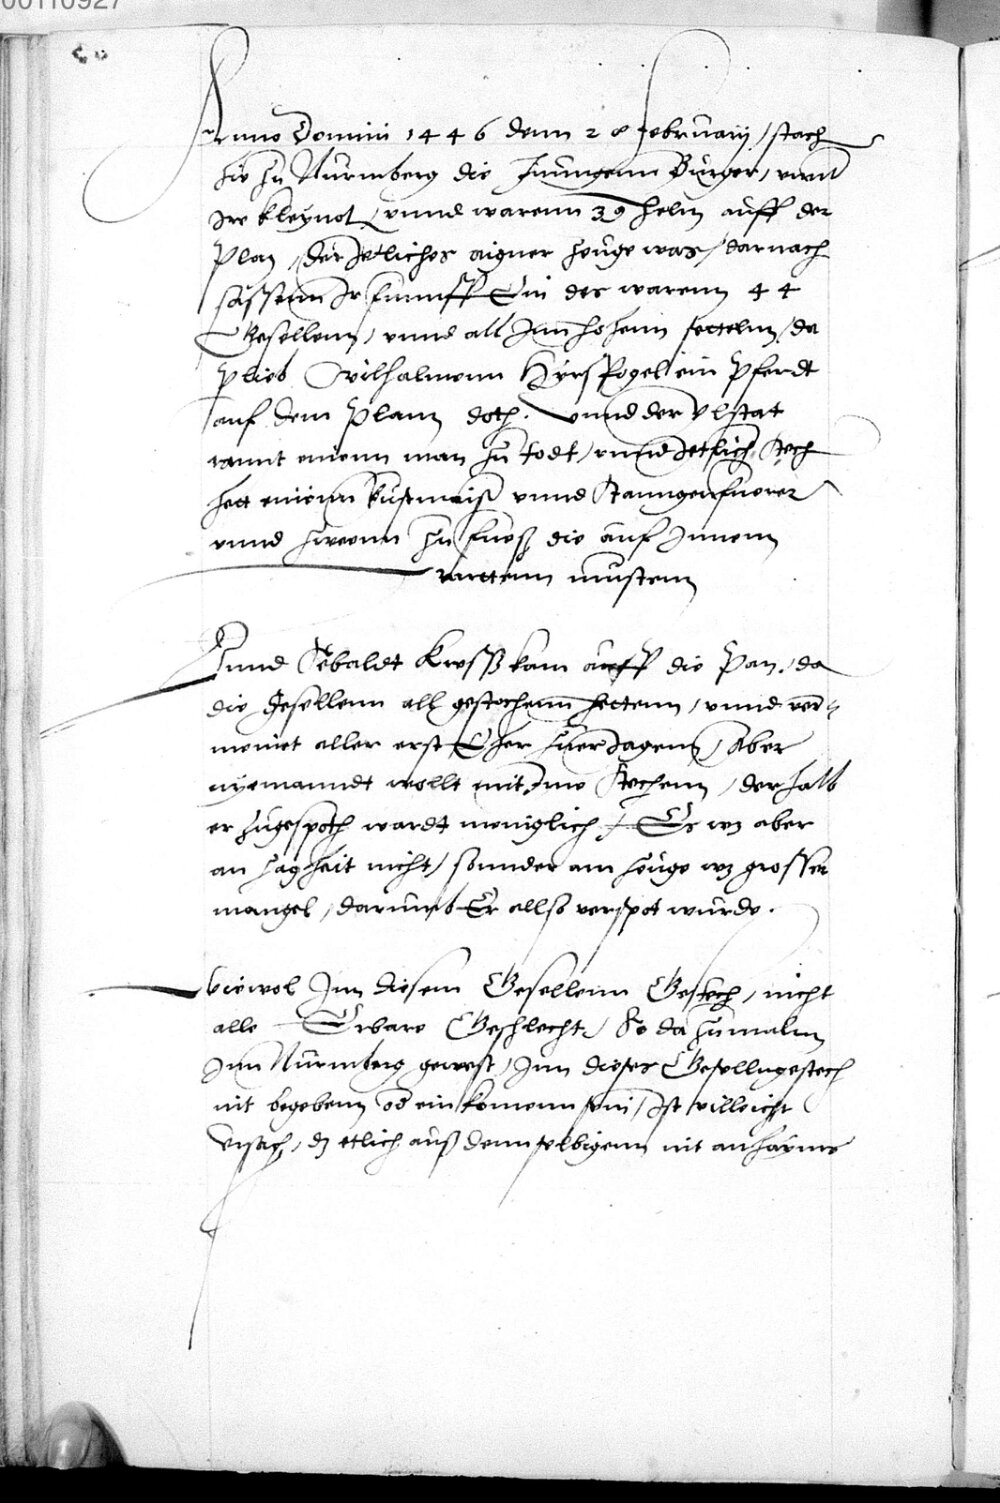 00110927
Anno Domini 1446 denn 28 february / stach
hie zu Nurmberg die Junngenn Burger / vmb
Jre kleynot / vnnd warenn 39 helm auff der
Plan / der Jetliches aigner zeuge was / darnach
sassenn Jr funnff Ein des warenn 44
Gesellenn / vnnd all Jnn hohenn settelnn / da
plieb Wilhalmenn Hyrsfogel ein Pferdt
auf dem Plann doth. Vnnd der Vlstat
rannt einenn man zu todt / vnnd Jetlich Stech
hett einenn Rustmaiss vnnd Stanngenfuerer
vnnd zwenn zu fuess die auf Jnnenn
warttenn mustenn
Vnnd Sebaldt Kress kam auff die Pan / da
die Gesellenn all gestochenn hettenn / vnnd ver=
meinet aller erst Eher zuerJagenn / Aber
nyemanndt wollt mit Jme Stechenn / derhalb
er zugespoth wardt meniglich / Es wz aber
an zagheit nicht / sonnder am zeuge wz grosser
mangel / darumb Er allso verspot wurde.
Wiewol Jnn diesem Gesellenn Gestech / nicht
alle Erbare Geschlecht / So dazumaln
Jnn Nurmberg gewest / Jnn dieses Gesellngestech
nit begebenn od einkomenn sein / Jst villeicht
Vrsach / dz ettlich auss dennselbigenn nit anhayms